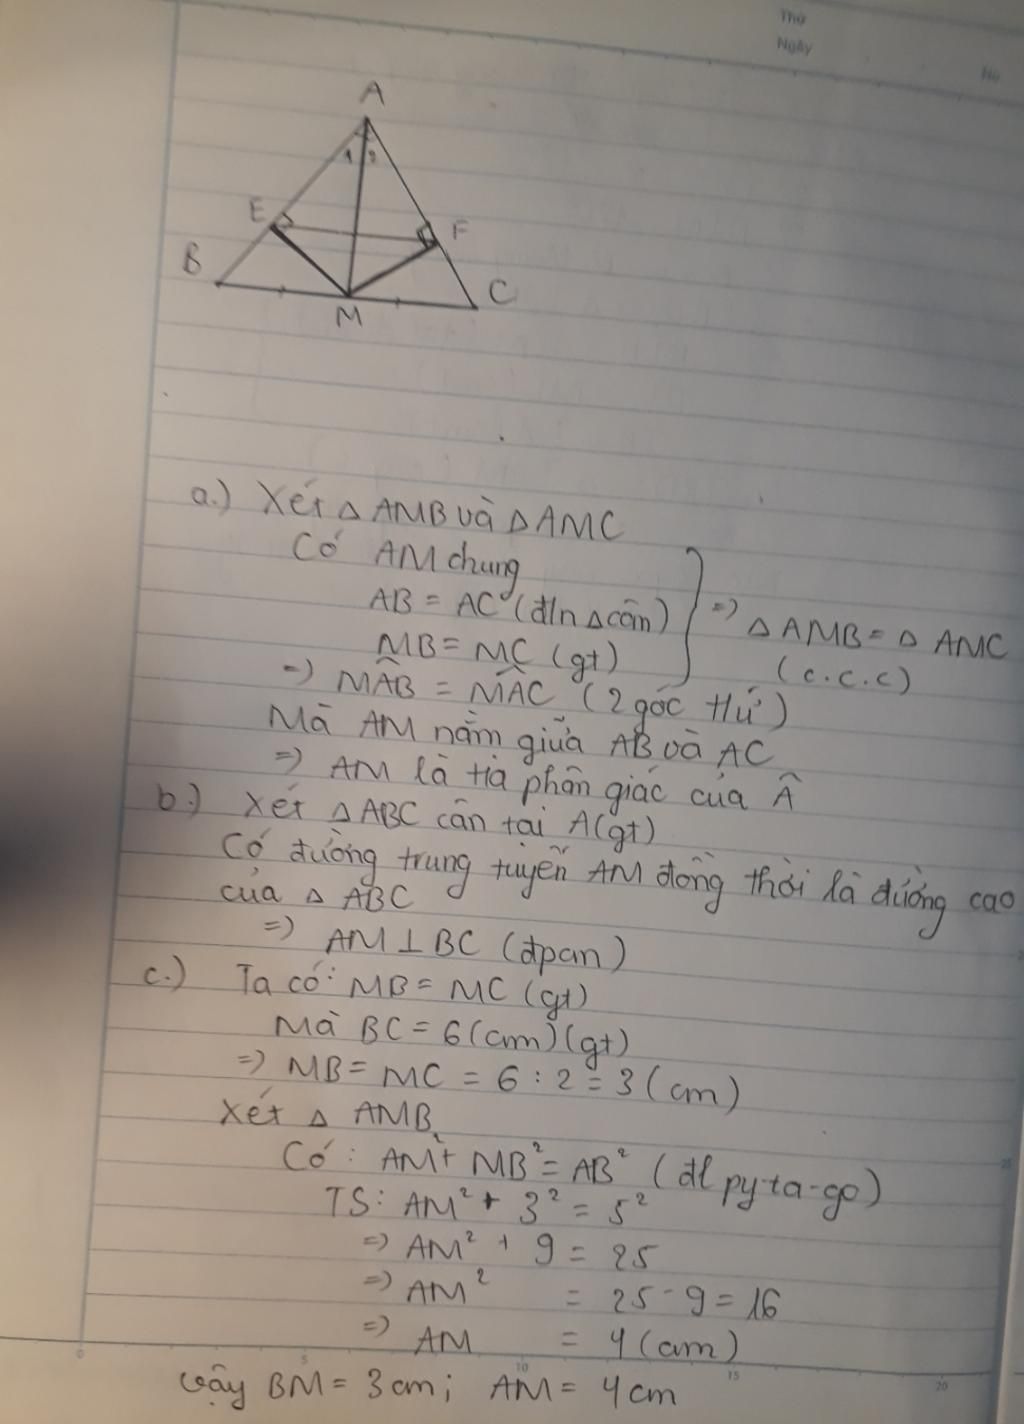 Thứ
Ngày
No
A
1 2
E
F
B
C
M
a.) Xét △ AMB và △ AMC
Có AM chung
AB = AC (đln △ cân)
MB = MC (gt)
=> △ AMB = △ AMC
(c.c.c)
=> MÂB = MÂC (2 góc tứ)
Mà AM nằm giữa AB và AC
=> AM là tia phân giác của Â
b.) Xét △ ABC cân tại A (gt)
Có đường trung tuyến AM đồng thời là đường cao
của △ ABC
=> AM ⊥ BC (đpcm)
c.) Ta có: MB = MC (gt)
Mà BC = 6 (cm) (gt)
=> MB = MC = 6 : 2 = 3 (cm)
Xét △ AMB
Có: AM² + MB² = AB² (đl py-ta-go)
TS: AM² + 3² = 5²
=> AM² + 9 = 25
=> AM² = 25 - 9 = 16
=> AM = 4 (cm)
0 5 10 15 20
Vậy BM = 3 cm; AM = 4 cm